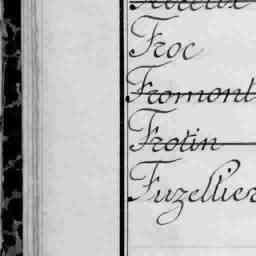 Froc
Fromont
Frotin
Fuzellier